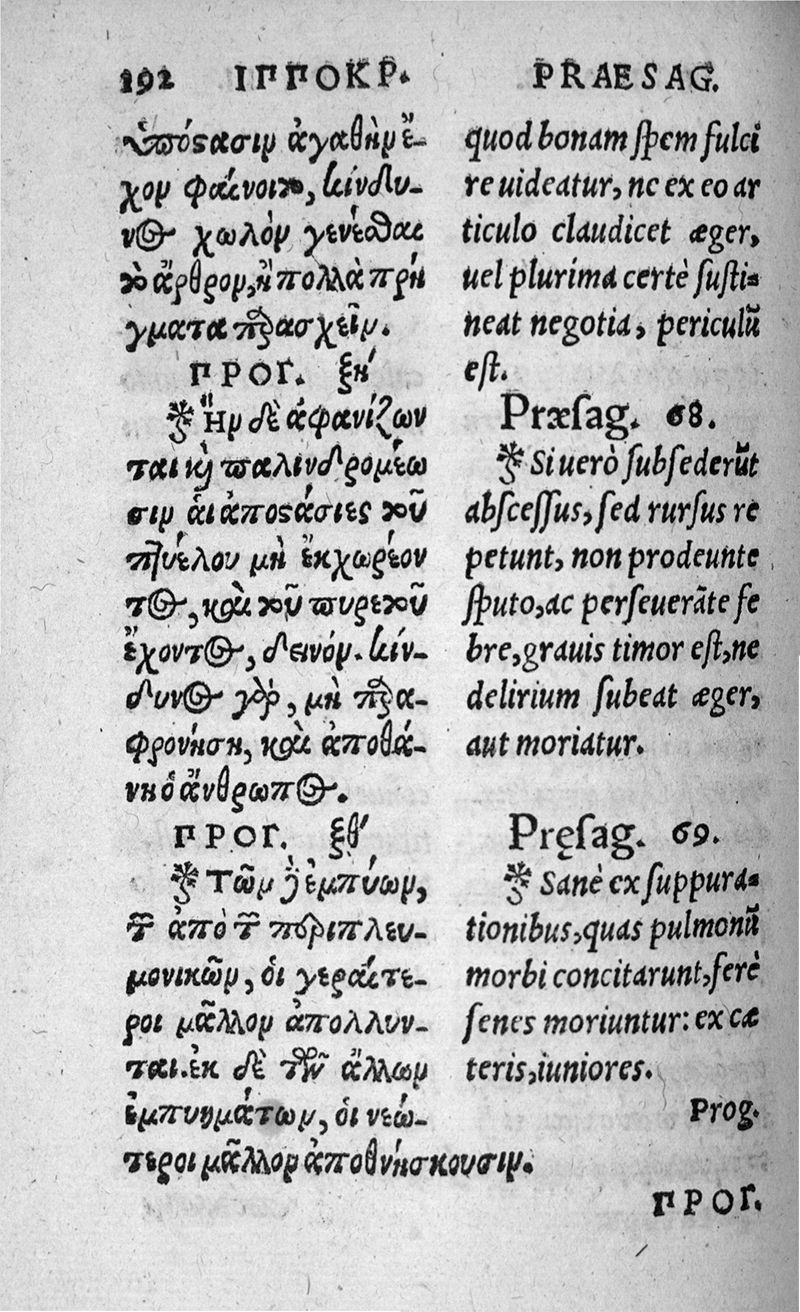 192 ΙΠΠΟΚΡ. PRAESAG.
ὑπόϛασιν ἀγαθὴν ἔ-
χον φαίνοιτο, κίνδυ-
νος χωλὸν γενέσθαι
τὸ ἄρθρον, ἢ πολλὰ πρή
γματα παρασχεῖν.
ΠΡΟΓ. ξη΄
Ἢν δὲ ἀφανίζων
ται καὶ παλινδρομέω
σιν ἁι ἀποϛάσιες τοῦ
πτυέλου μὴ ἐκχωρέον
τος, καὶ τοῦ πυρετοῦ
ἔχοντος, δεινόν. κίν-
δυνος γὰρ, μὴ παρα-
φρονήση, καὶ ἀποθά-
νη ὁ ἄνθρωπος.
ΠΡΟΓ. ξθ΄
Τῶν δὲ ἐμπύων,
τῶν ἀπὸ τῶν περιπλευ-
μονικῶν, ὁι γεραίτε-
ροι μᾶλλον ἀπολλυν-
ται. ἐκ δὲ τῶν ἄλλων
ἐμπυημάτων, ὁι νεώ-
τεροι μᾶλλον ἀποθνήσκουσιν.
quod bonam spem fulci
re uideatur, ne ex eo ar
ticulo claudicet æger,
uel plurima certè susti-
neat negotia, periculũ
est.
Præsag. 68.
Si uerò subsederũt
abscessus, sed rursus re
petunt, non prodeunte
sputo, ac perseuerãte fe
bre, grauis timor est, ne
delirium subeat æger,
aut moriatur.
Pręsag. 69.
Sanè ex suppura-
tionibus, quas pulmonũ
morbi concitarunt, ferè
senes moriuntur: ex cæ
teris, iuniores.
Prog.
ΠΡΟΓ.